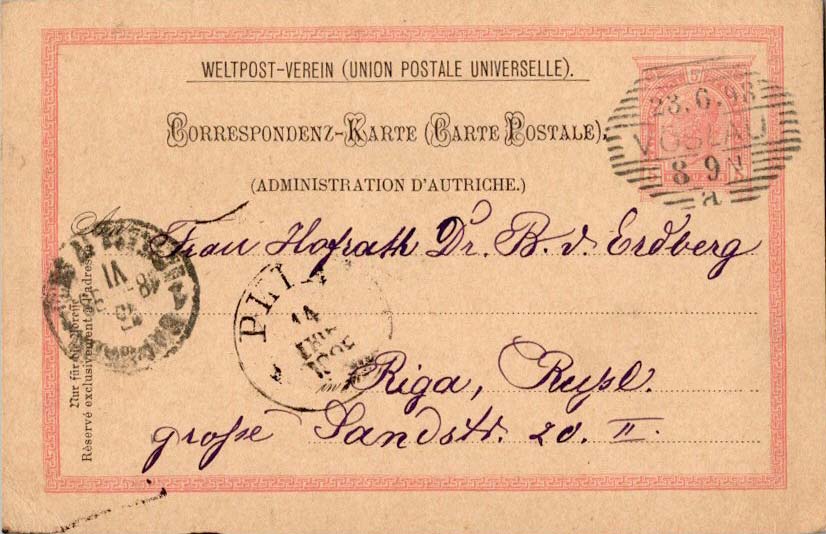 WELTPOST-VEREIN (UNION POSTALE UNIVERSELLE).
CORRESPONDENZ-KARTE (CARTE POSTALE).
(ADMINISTRATION D'AUTRICHE.)
23.6.98
VÖSLAU
8 9 N
a
An Frau Hofrath Dr. B. v. Erdberg
VI
18
15
14
in Riga, Russl.
große Sandstr. 20. II.
Nur für die Adresse
Réservé exclusivement à l'adresse